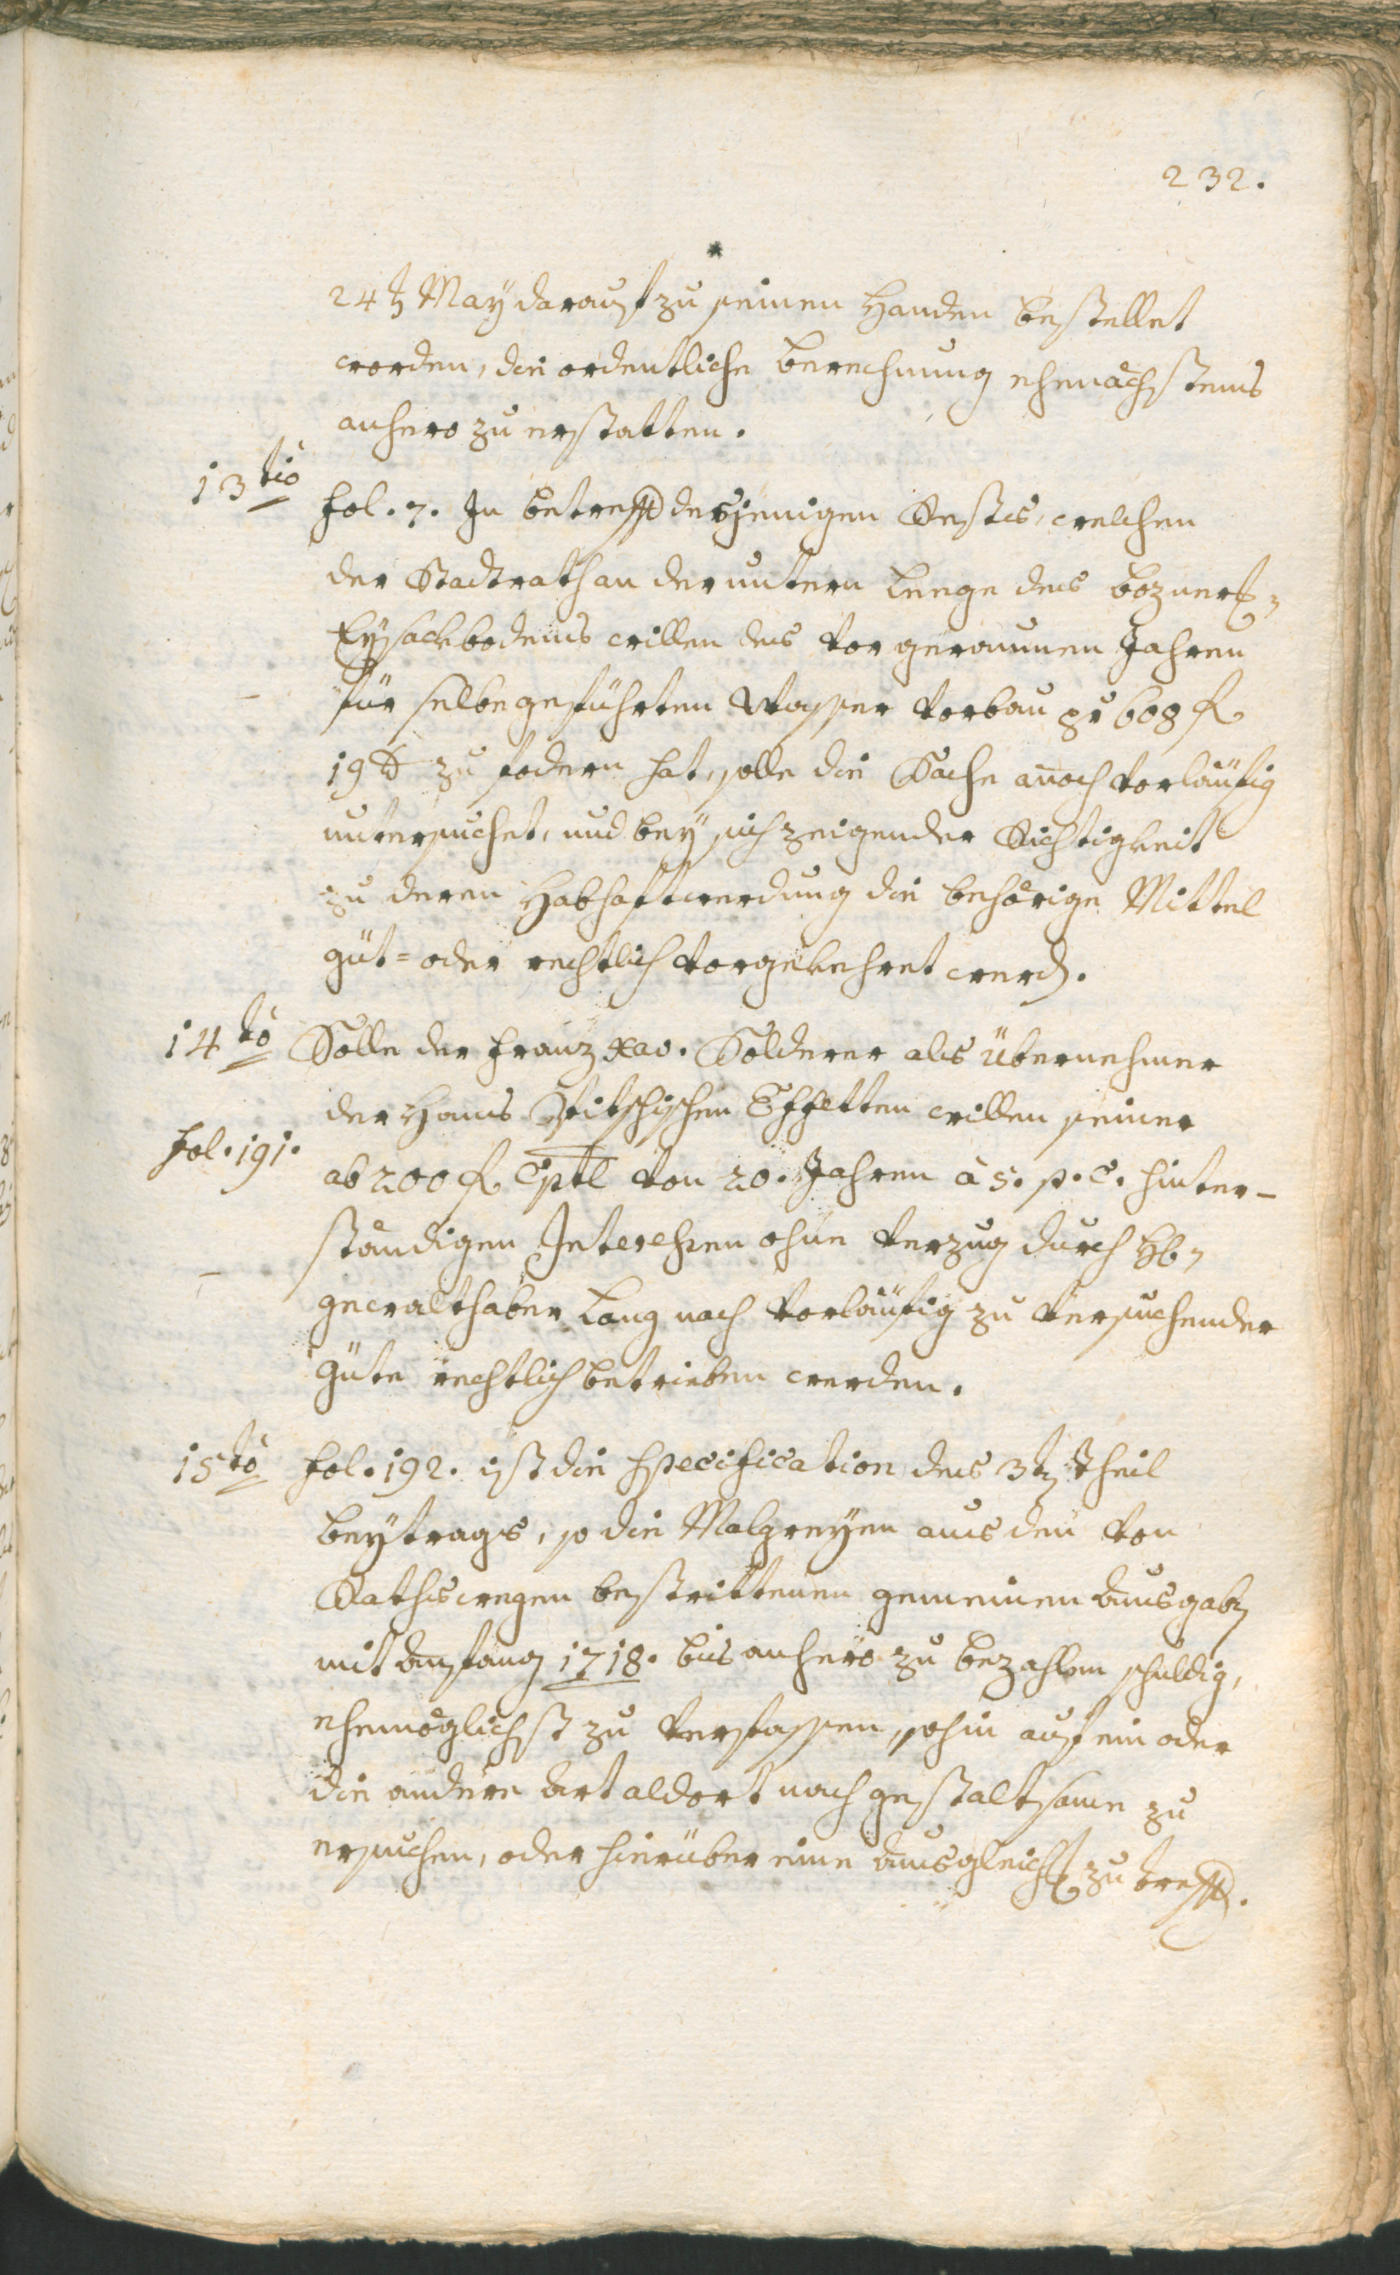 232.
24t May darauf zu seinen Handen bestellet
worden, die ordentliche berechnung ehenächstens
anhero zu erstatten.
13tio
fol. 7. In betreff desjenigen Restes, welchen
der Stadtrath an der untern Leege des bozners
Eysackbodens willen des vor geraumen Jahren
für selbe geführten Wasser Vorbau pr 608 f
19 xr zu fodern hat, solle die Sache annoch vorläufig
untersuchet, und bey sich zeigender Richtigkeit
zu deren Habhaftwerdung die behörige Mittel
güt= oder rechtlich vorgekehret werd.
14to
Solle der Franz Xav. Kolderer als übernehmer
der Hans Effetten willen seiner
fol. 191.
ab 200 f Cptl von 20. Jahren à 5. p. C. hinter-
ständigen Interehsen ohne Verzug durch H
gwralthaber Lang nach vorläufig zu versuchender
güte rechtlich betrieben werden.
15to
fol. 192. ist die Specification des 3t Theil
beytrags, so die Malgreyen aus den von
Raths wegen bestrittenen gemeinen Ausgab
mit Anfang 1718. bis anhero zu bezahlen schuldig,
ehemöglichst zu verfassen, sohin auf ein oder
die andere Art aldort nach gestaltsame zu
ersuchen, oder hierüber eine Ausgleich zu treff.